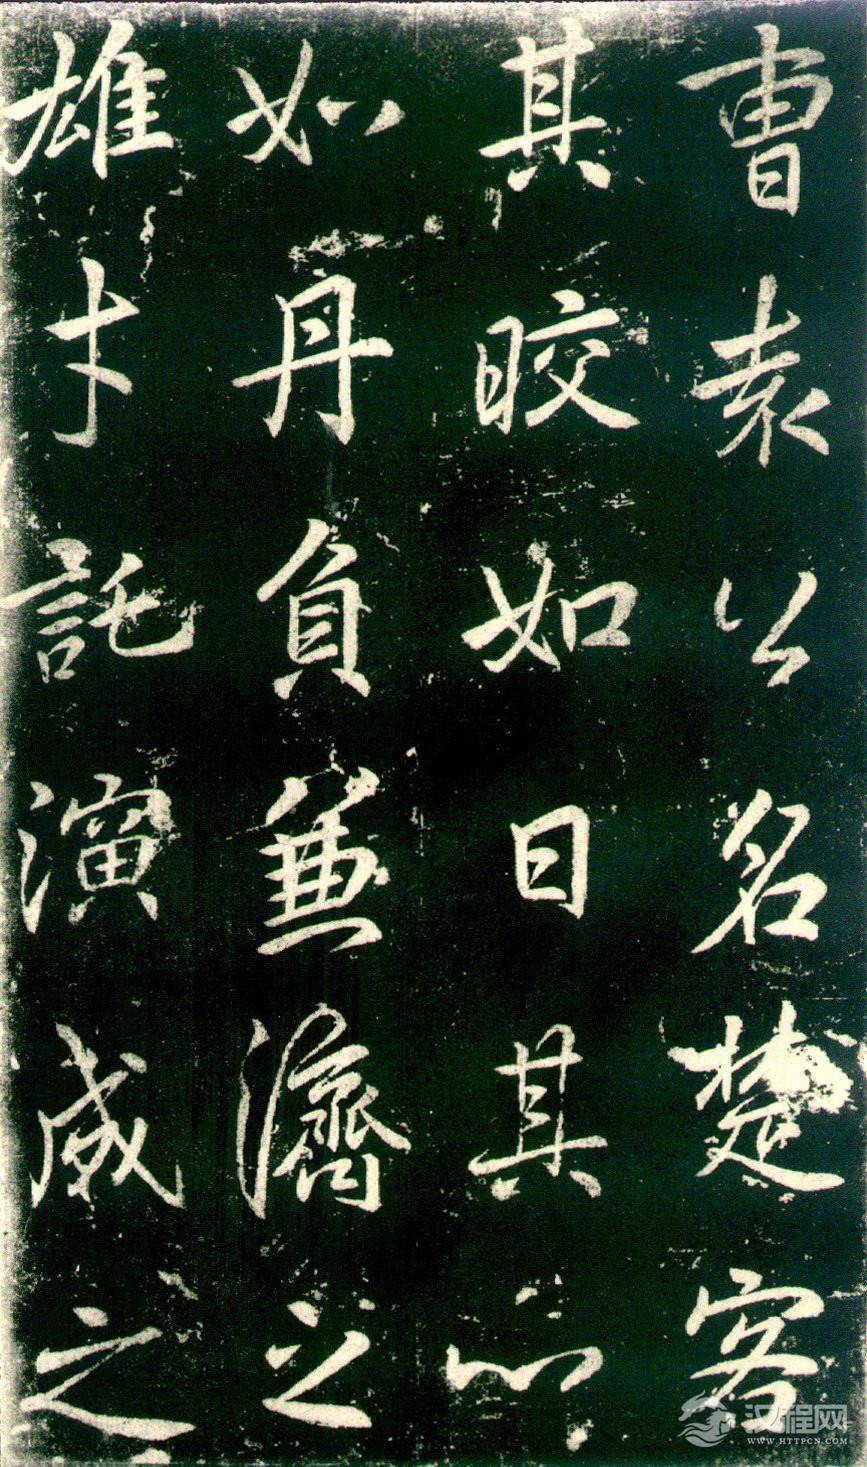 曹袁公名楚客
其皎如日其心
如丹負兼濟之
雄才託演威之
汉程网
WWW.HTTPCN.COM